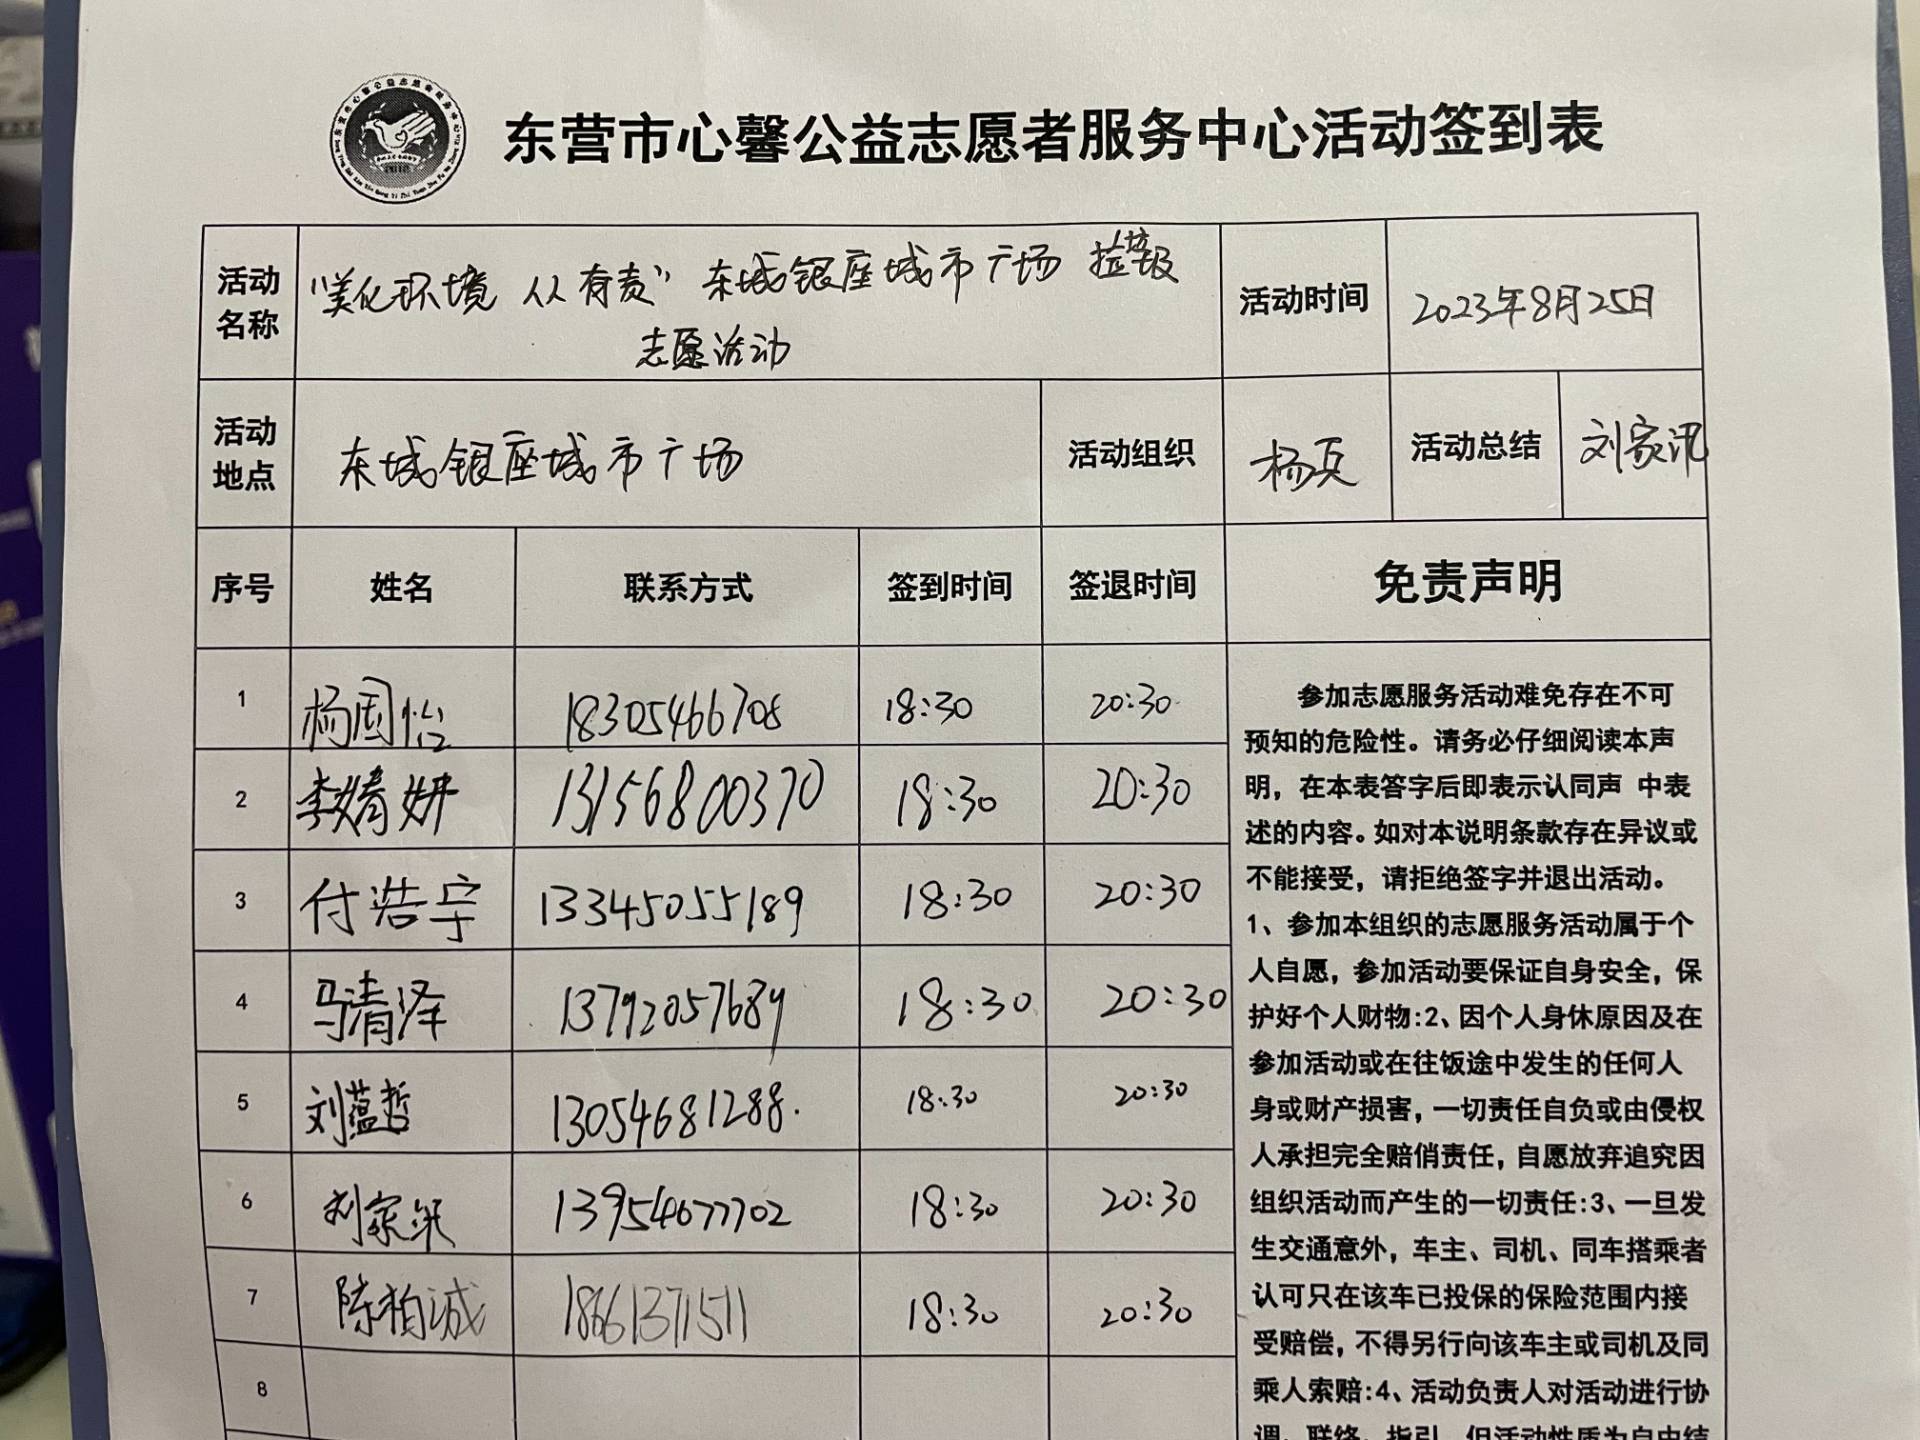 东营市心馨公益志愿者服务中心活动签到表
活动名称 "美化环境 人人有责" 东城银座城市广场 捡垃圾
志愿活动
活动时间 2023年8月25日
活动地点 东城银座城市广场 活动组织 活动总结
序号 姓名 联系方式 签到时间 签退时间 免责声明
1 18305466708 18:30 20:30
2 李婧妍 13156800370 18:30 20:30
3 付浩宇 13345055189 18:30 20:30
4 马清泽 13792057689 18:30 20:30
5 刘蕴哲 13054681288. 18:30 20:30
6 13954677702 18:30 20:30
7 陈柏诚 18661371511 18:30 20:30
8
参加志愿服务活动难免存在不可
预知的危险性。请务必仔细阅读本声
明，在本表答字后即表示认同声 中表
述的内容。如对本说明条款存在异议或
不能接受，请拒绝签字并退出活动。
1、参加本组织的志愿服务活动属于个
人自愿，参加活动要保证自身安全，保
护好个人财物:2、因个人身休原因及在
参加活动或在往饭途中发生的任何人
身或财产损害，一切责任自负或由侵权
人承担完全赔俏责任，自愿放弃追究因
组织活动而产生的一切责任:3、一旦发
生交通意外，车主、司机、同车搭乘者
认可只在该车已投保的保险范围内接
受赔偿，不得另行向该车主或司机及同
乘人索赔:4、活动负责人对活动进行协
调、联络、指引，但活动性质为自由结